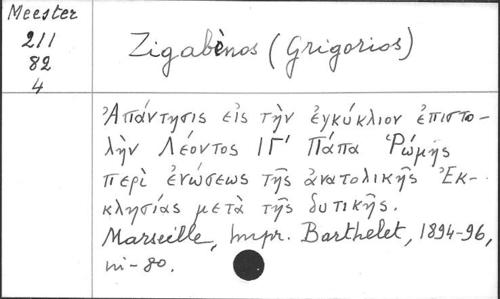 Meester
211
82
4
Zigabènos (Grigorios)
Ἀπάντησις εἰς τὴν ἐγκύκλιον ἐπιστο-
λὴν Λέοντος ΙΓ' Πάπα Ῥώμης
περὶ ἑνώσεως τῆς ἀνατολικῆς Ἐκ-
κλησίας μετὰ τῆς δυτικῆς.
Marseille, Impr. Barthelet, 1894-96,
in-8o.